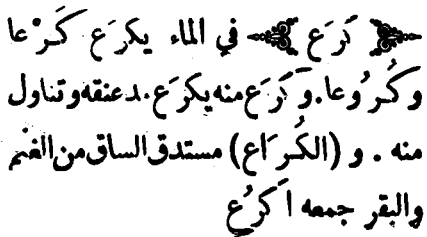 ﴿ كَرَع ﴾ في الماء يكرَع كَرْعا
وكُرُوعا. وَكَرَع منه يكرَع. مد عنقه وتناول
منه . و (الكُرَاع) مستدق الساق من الغنم
والبقر جمعه اَكرُع